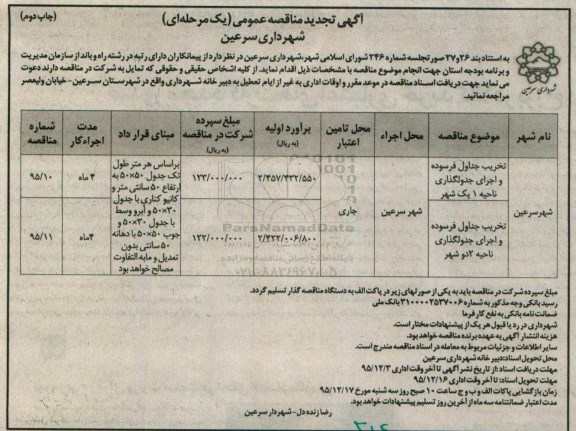 آگهی تجدید مناقصه عمومی (یک مرحله‌ای)
(چاپ دوم)
شهرداری سرعین
شهرداری سرعین
به استناد بند ۲۶ و ۲۷ صورتجلسه شماره ۲۴۶ شورای اسلامی شهر، شهرداری سرعین در نظر دارد از پیمانکاران دارای رتبه در رشته راه و باند از سازمان مدیریت
و برنامه بودجه استان جهت انجام موضوع مناقصه با مشخصات ذیل اقدام نماید. از کلیه اشخاص حقیقی و حقوقی که تمایل به شرکت در مناقصه دارند دعوت
می نماید جهت دریافت اسناد مناقصه در موعد مقرر و اوقات اداری به غیر از ایام تعطیل به دبیرخانه شهرداری واقع در شهرستان سرعین - خیابان ولیعصر
مراجعه نمائید.
نام شهر | موضوع مناقصه | محل اجراء | محل تامین اعتبار | برآورد اولیه (به ریال) | مبلغ سپرده شرکت در مناقصه (به ریال) | مبنای قرارداد | مدت اجراء کار | شماره مناقصه
شهر سرعین | تخریب جداول فرسوده و اجرای جدولگذاری ناحیه ۱ یک شهر | شهر سرعین | جاری | ۲/۴۵۷/۴۳۲/۵۵۰ | ۱۲۳/۰۰۰/۰۰۰ | براساس هر متر طول تک جدول ۵۰×۵۰ به ارتفاع ۵۰ سانتی متر و کانیو کناری با جدول ۳۰×۵۰ و آبرو وسط با جدول ۳۰×۵۰ و جوب ۵۰×۵۰ با دهانه ۵۰ سانتی بدون تعدیل و مابه التفاوت مصالح خواهد بود | ۴ ماه | ۹۵/۱۰
تخریب جداول فرسوده و اجرای جدولگذاری ناحیه ۲دو شهر | ۲/۴۲۲/۰۰۶/۸۰۰ | ۱۲۲/۰۰۰/۰۰۰ | ۴ماه | ۹۵/۱۱
ParsNamadData
مبلغ سپرده شرکت در مناقصه باید به یکی از صورتهای زیر در پاکت الف به دستگاه مناقصه گذار تسلیم گردد.
رسید بانکی وجه مذکور به شماره ۳۱۰۰۰۰۲۵۳۷۰۰۶ بانک ملی
ضمانت نامه بانکی به نفع کارفرما
شهرداری در رد یا قبول هر یک از پیشنهادات مختار است.
هزینه انتشار آگهی به عهده برنده مناقصه خواهد بود.
سایر اطلاعات و جزئیات مربوط به معامله در اسناد مناقصه مندرج است.
محل تحویل اسناد: دبیرخانه شهرداری سرعین
مهلت دریافت اسناد: از تاریخ نشر آگهی تا آخر وقت اداری ۹۵/۱۲/۳
مهلت تحویل اسناد: تا آخر وقت اداری ۹۵/۱۲/۱۶
زمان بازگشایی پاکات الف و ب و ج ساعت ۱۰ صبح روز سه شنبه مورخ ۹۵/۱۲/۱۷
مدت اعتبار ضمانتنامه سه ماه از آخرین روز تسلیم پیشنهادات خواهد بود.
رضا زنده دل - شهردار سرعین